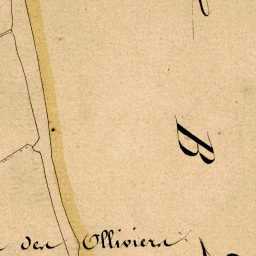 B
des Olliviers